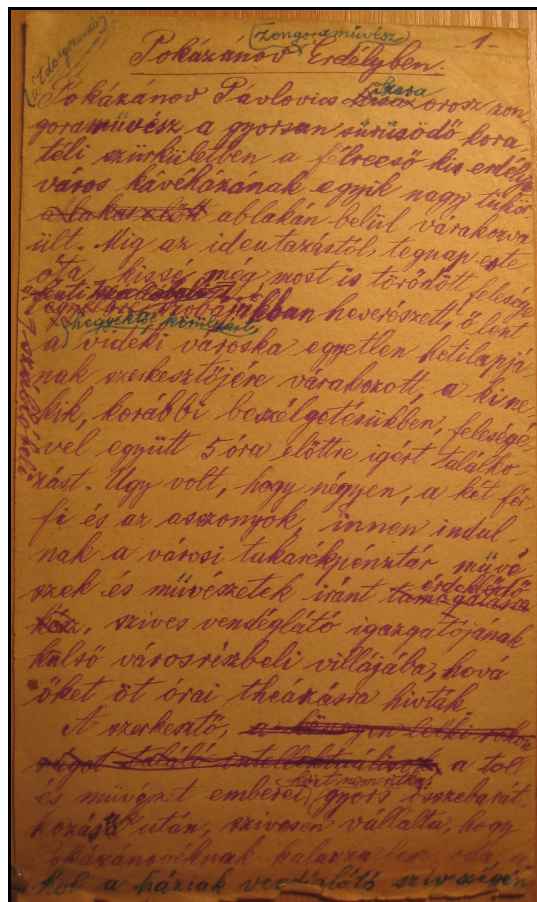 (átdolgozandó)
(zongoraművész)
Pokázánov Erdélyben. -1-
Pokázánov Pávlovics orosz zon
goraművész a gyorsan sürüsödő kora
téli szürkületben a félreeső kis erdélyi
város kávéházának egyik nagy tükör
ablakai előtt ablakán belül várakozva
ült. Mig az ideutazástól, tegnap este
óta, kissé még most is törődött felesége
heverészett, ő lent
a vidéki városka egyetlen hetilapjá-
nak szerkesztőjére várakozott, a ki ne-
kik, korábbi beszélgetésükben, feleségé-
vel együtt 5 óra előttre igért találko-
zást. Ugy volt, hogy négyen, a két fér-
fi és az asszonyok, innen indul-
nak a városi takarékpénztár, művé
szek és művészetek iránt érdeklődő
szives vendéglátó igazgatójának
külső városrészbeli villájába, hová
őket öt órai theázásra hivták.
A szerkesztő, a toll
és művészet emberei gyors összebarát-
kozás után, szivesen vállalta, hogy
Pokázánovéknak kalauza lesz, oda, a
hol a háziak vendéglátó szivességén